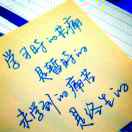 学习时的苦痛
是暂时的
未学到的痛苦
是终生的